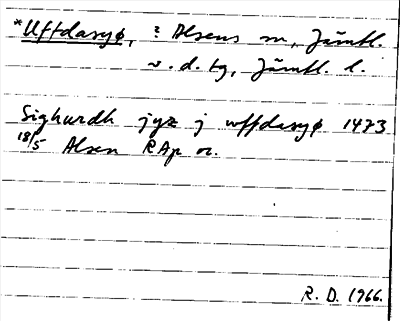 *Uffdasyø, ? Alsens sn, Jämtl.
v. d. tg, Jämtl. l.
Sighurdh jyz j uffdasyø 1473
18/5 Alsen RAp or.
R. D. 1966.